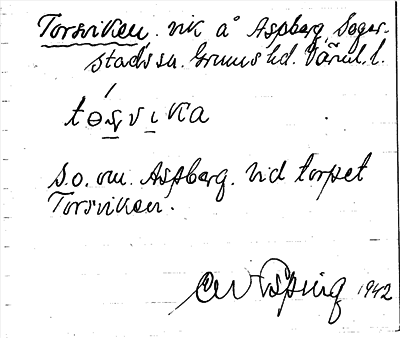 Torsviken. vik å Aspberg, Seger-
stads sn. Grums hd. Värml. l.
tɵʂvika
S.o. om. Aspberg. Vid torpet
Torsviken.
1942